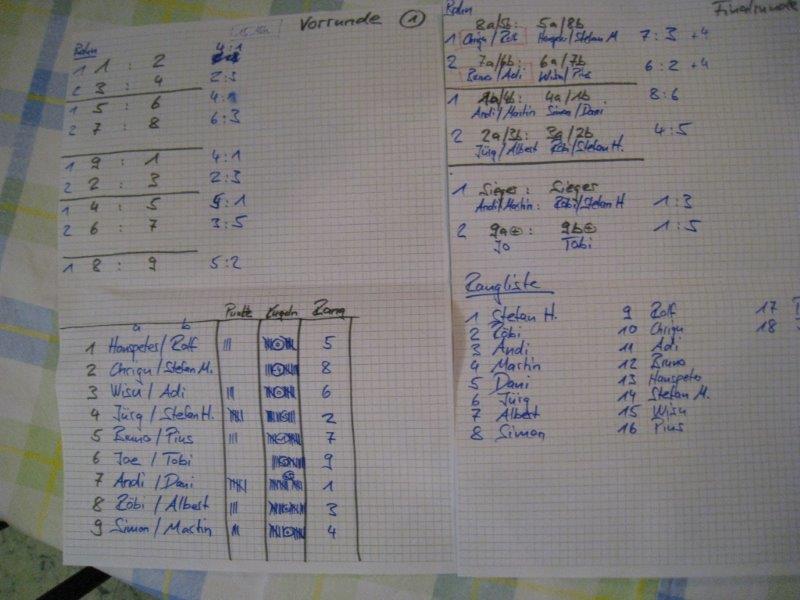 Vorrunde 1
Rahn
4:1
1 1 : 2
2 3 : 4 2:3
1 5 : 6 4:1
2 7 : 8 6:3
1 9 : 1 4:1
2 2 : 3 2:3
1 4 : 5 5:1
2 6 : 7 3:5
1 8 : 9 5:2
Punkte Kugeln Rang
a b
1 Hanspeter/Rolf 5
2 Chrigu/Stefan M. 8
3 Wisu/Adi 6
4 Jürg/Stefan H. 2
5 Bruno/Pius 7
6 Joe/Tobi 9
7 Andi/Dani 1
8 Röbi/Albert 3
9 Simon/Martin 4
Rahn Finalrunde
8a/5b: 5a/8b
1 Chrigu/Rolf Hanspeter/Stefan M 7:3 +4
7a/6b: 6a/7b
2 Bruno/Adi Wisu/Pius 6:2 +4
1 4a/1b 8:6
Andi/Martin Simon/Dani
2 2a/3b: 3a/2b 4:5
Jürg/Albert Röbi/Stefan H.
1 Sieger: Sieger
Andi/Martin: Röbi/Stefan H 1:3
2 9a 9b 1:5
Jo Tobi
Rangliste
1 Stefan H. 9 Rolf 17
2 Röbi 10 Chrigu 18
3 Andi 11 Adi
4 Martin 12 Bruno
5 Dani 13 Hanspeter
6 Jürg 14 Stefan M.
7 Albert 15 Wisu
8 Simon 16 Pius